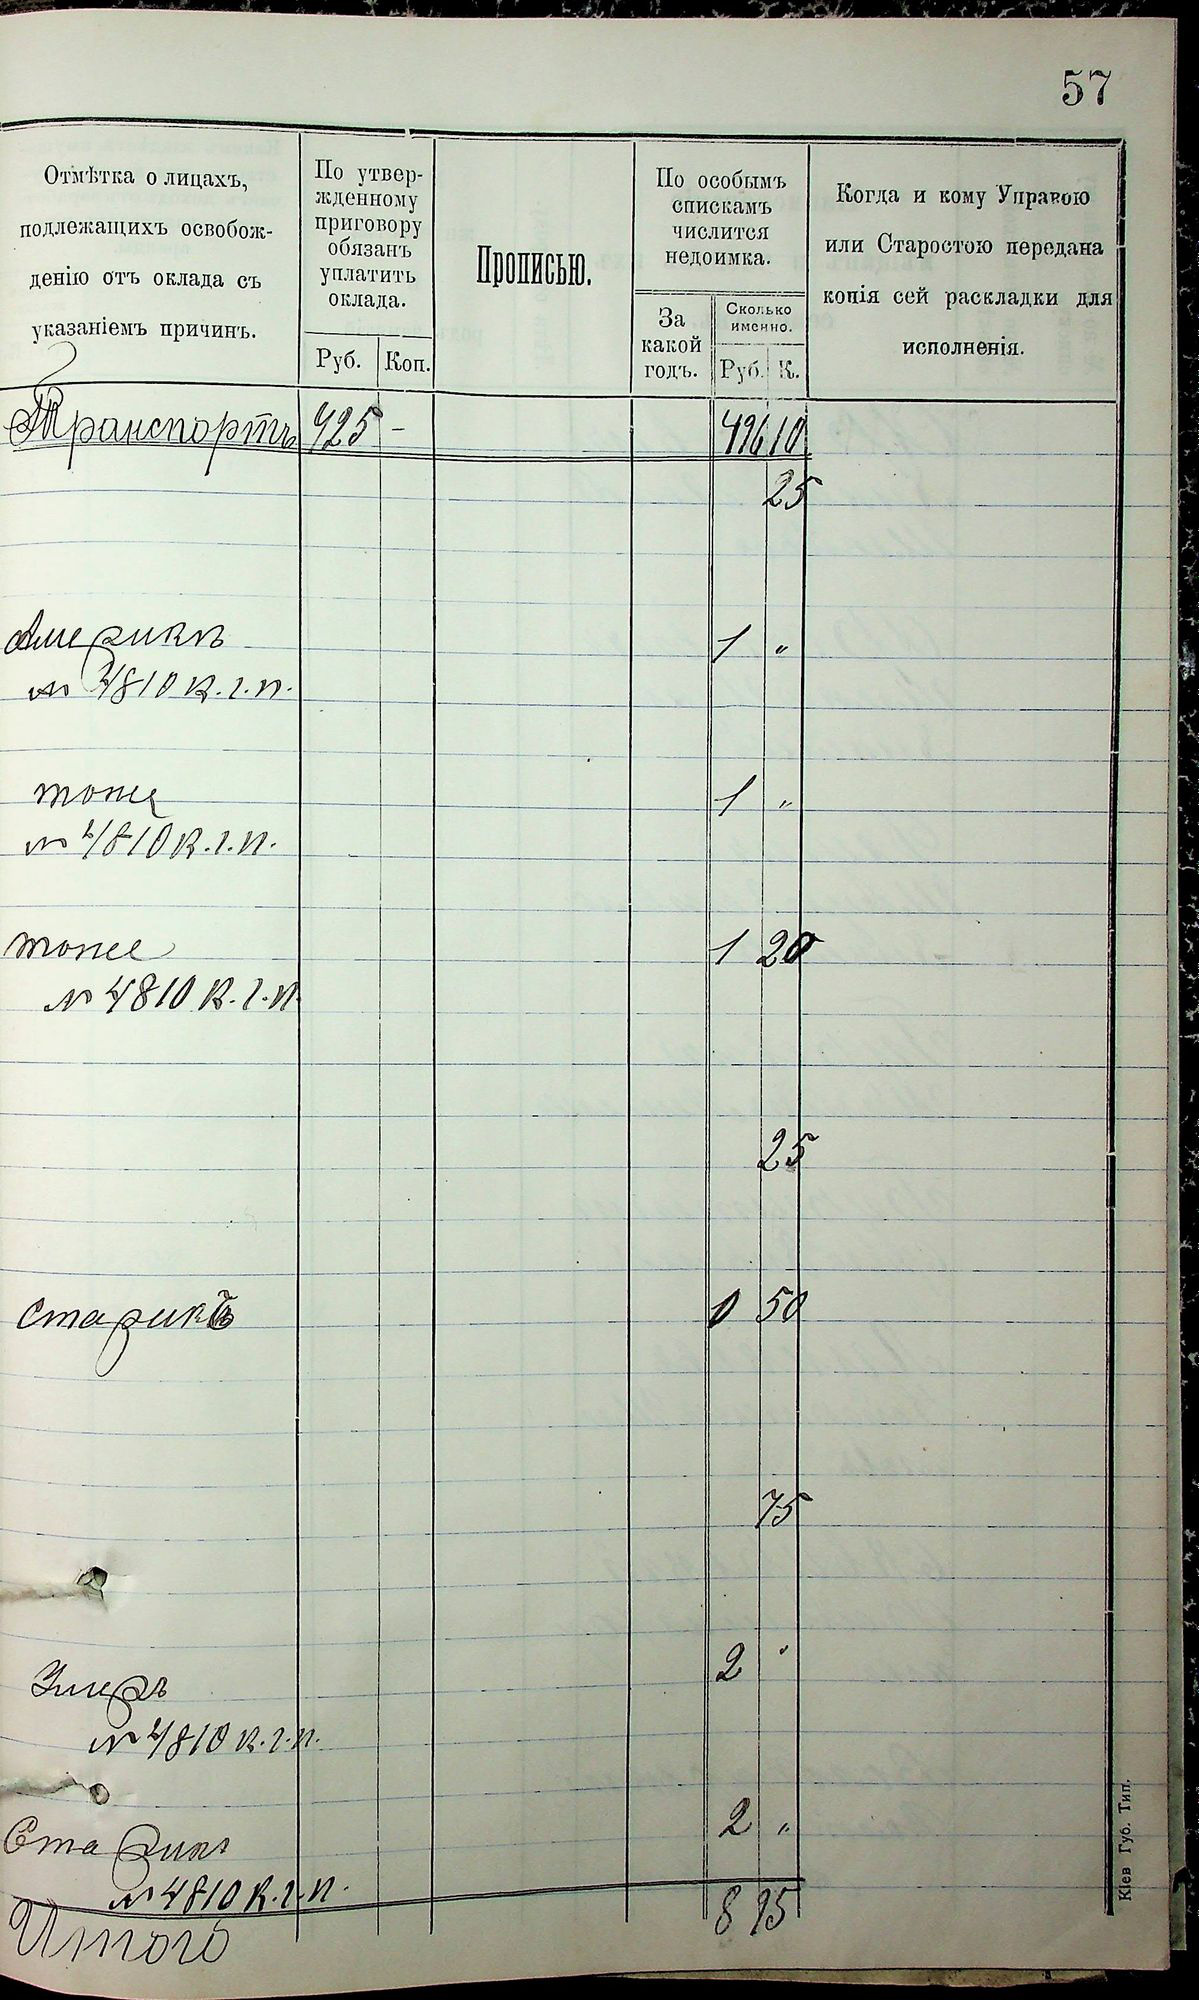 57
Отмѣтка о лицахъ,
подлежащихъ освобож-
денію отъ оклада съ
указаніемъ причинъ.
По утвер-
жденному
приговору
обязанъ
уплатить
оклада.
Руб. Коп.
Прописью.
По особымъ
спискамъ
числится
недоимка.
За
какой
годъ.
Сколько
именно.
Руб. К.
Когда и кому Управою
или Старостою передана
копія сей раскладки для
исполненія.
Транспортъ 925 - 496 10
25
Америкѣ 1 "
№ 4810 К.г.п.
тоже 1 "
№ 4810 К.г.п.
тоже 1 20
№ 4810 К.г.п.
25
старикъ 0 50
75
Умеръ 2 "
№ 4810 К.г.п.
Старикъ 2 "
№ 4810 К.г.п.
Итого 8 95
Кіев Губ. Тип.